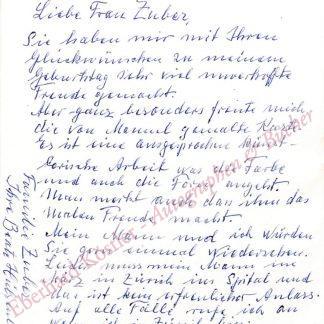 Liebe Frau Zuber,
Sie haben mir mit Ihren
Glückwünschen zu meinem
Geburtstag sehr viel unverhoffte
Freude gemacht.
Aber ganz besonders freute mich
die von Manuel gemalte Karte.
Es ist eine ausgesprochene künst-
lerische Arbeit was die Farbe
und auch die Form angeht.
Man merkt auch dass ihm das
Malen Freude macht.
Mein Mann und ich würden
Sie gern einmal Wiedersehen.
Leider muss mein Mann im
März in Zürich ins Spital und
das ist kein erfreulicher Anlass.
Auf alle Fälle rufe ich an
wenn ich in Zürich
Familie Zuber
Eberhard Köstler - Autographen & Bücher